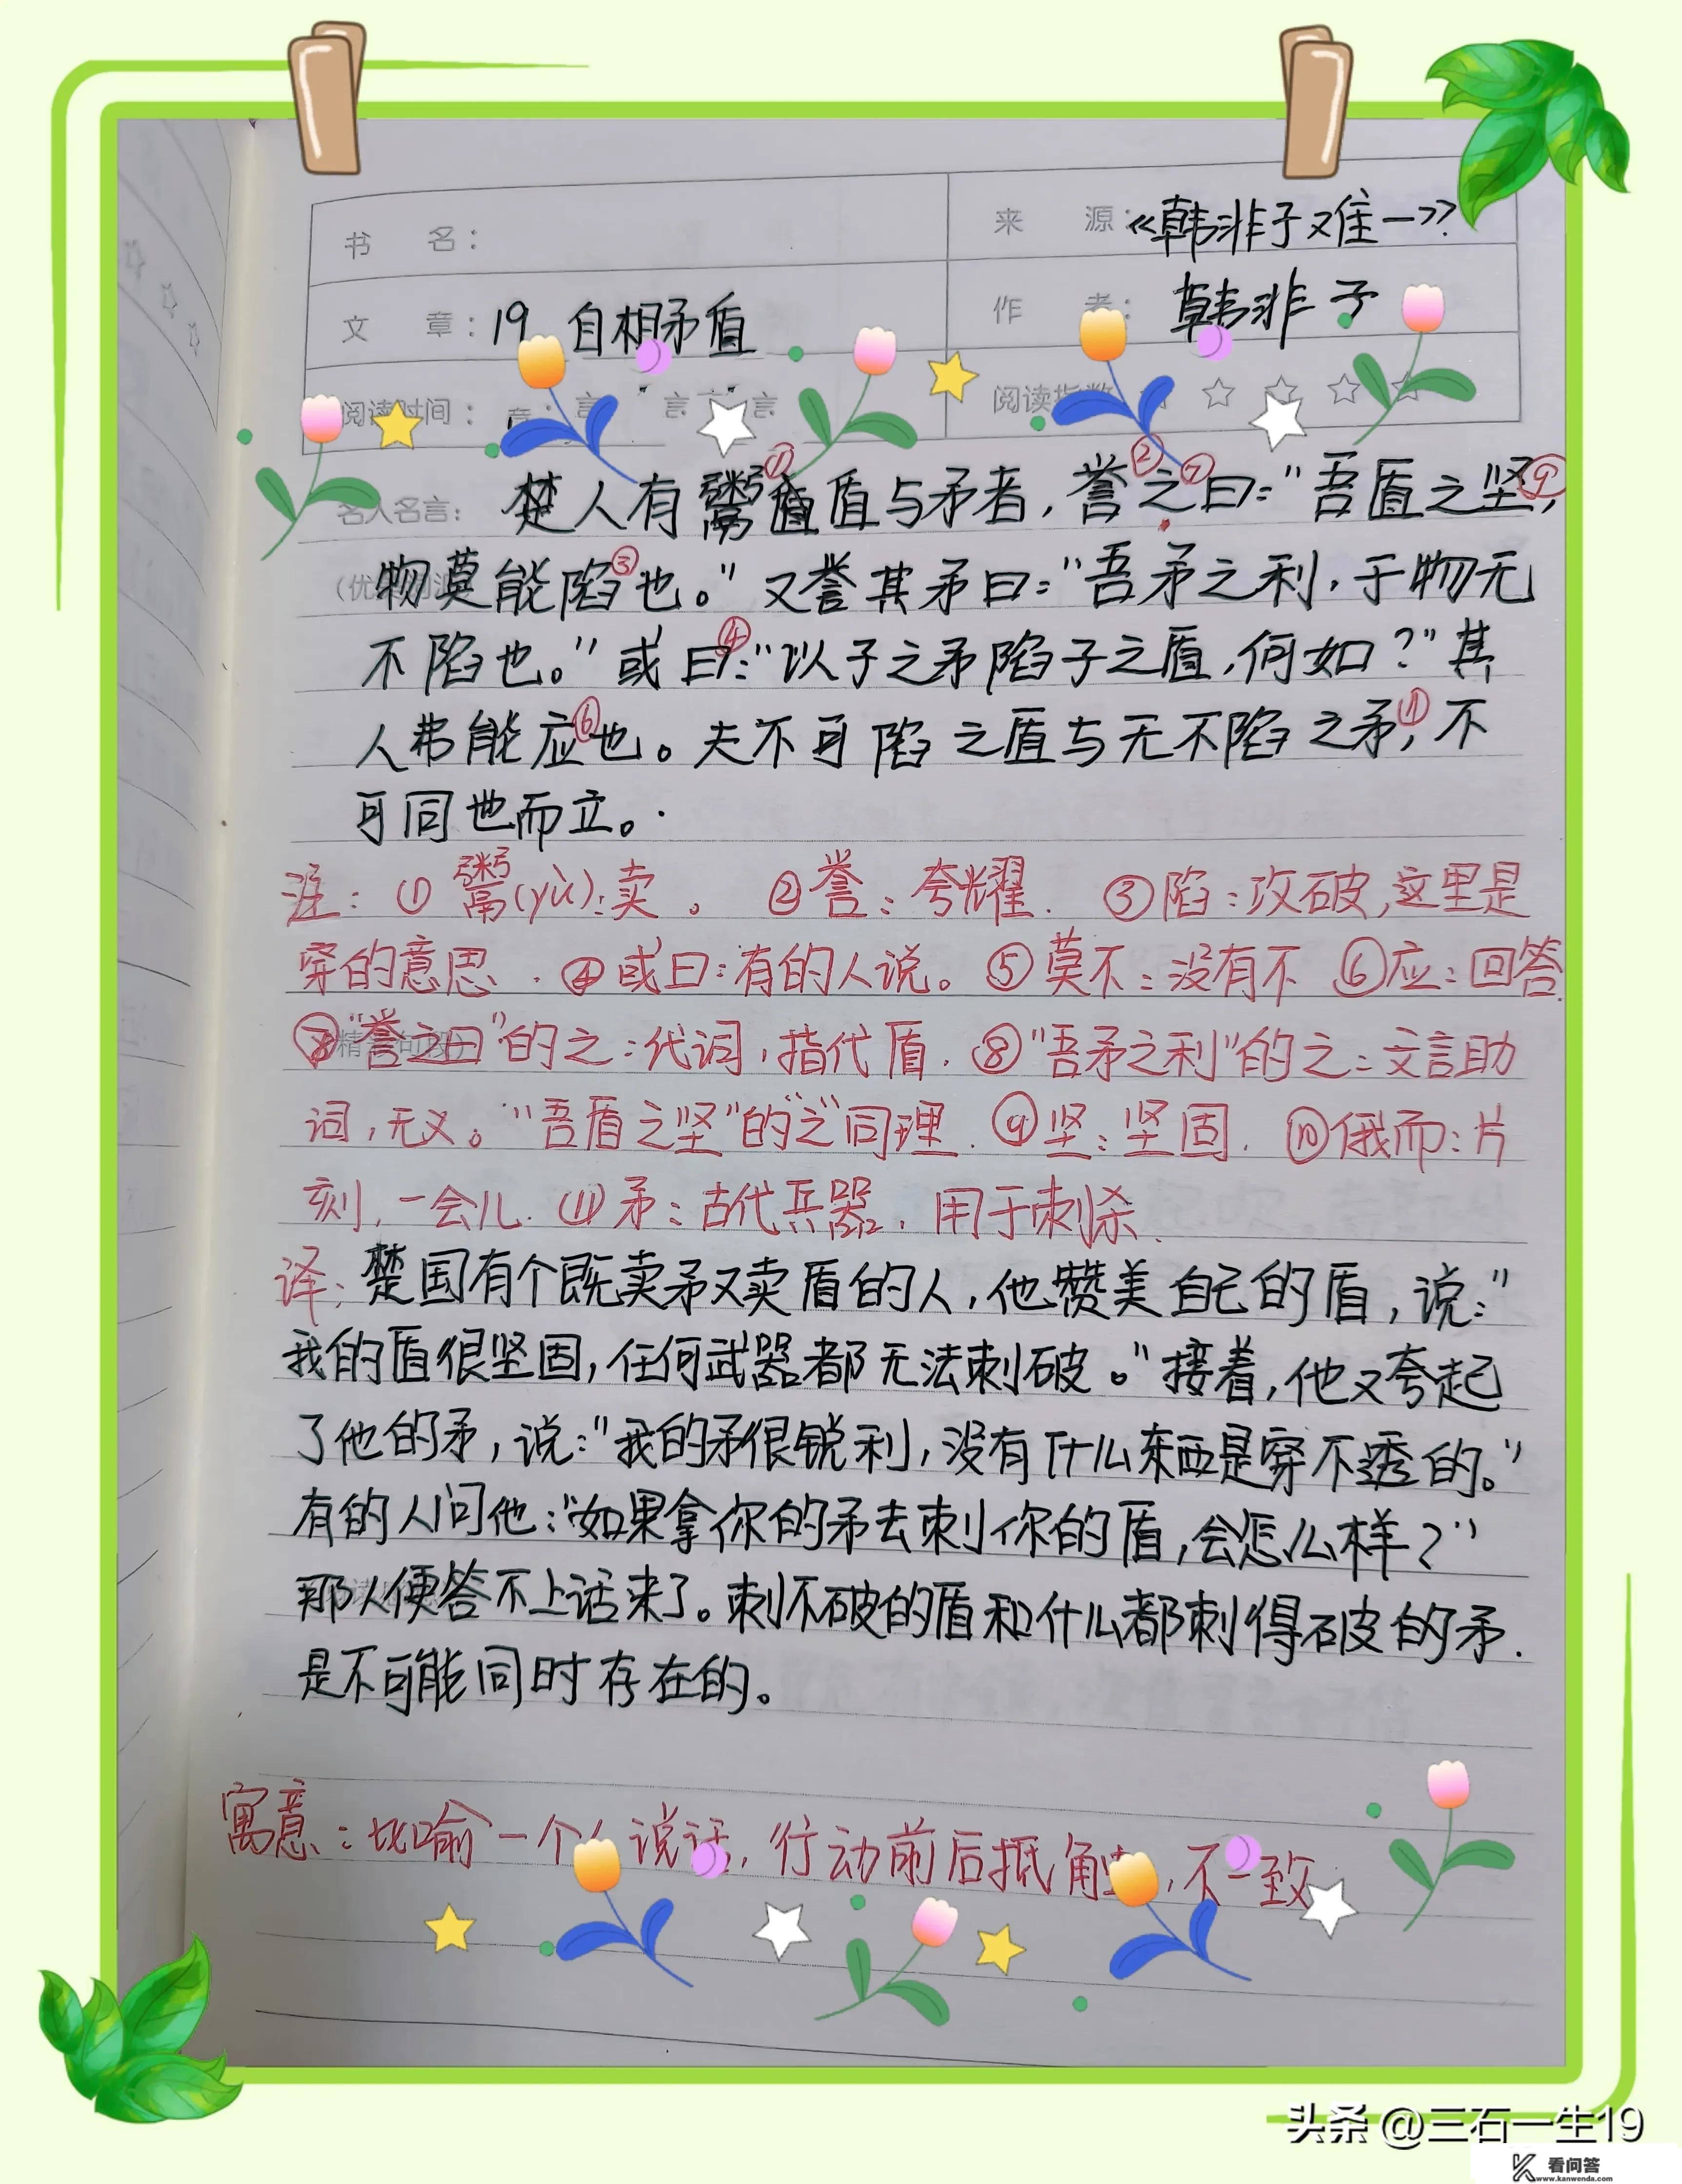 书 名：
来 源：《韩非子难一》
文 章：19 自相矛盾
作 者：韩非子
阅读时间：
阅读指数
名人名言：
楚人有鬻①盾与矛者，誉②之⑦曰："吾盾之坚⑨，
物莫能陷③也。"又誉其矛曰："吾矛之利，于物无
不陷也。"或曰④："以子之矛陷子之盾，何如？"其
人弗能应⑥也。夫不可陷之盾与无不陷之矛⑪，不
可同世而立。
注：①鬻(yù)：卖。 ②誉：夸耀. ③陷：攻破，这里是
穿的意思. ④或曰：有的人说。⑤莫不：没有不 ⑥应：回答.
⑦"誉之曰"的之：代词，指代盾. ⑧"吾矛之利"的之：文言助
词，无义。"吾盾之坚"的"之"同理. ⑨坚：坚固. ⑩俄而：片
刻，一会儿. ⑪矛：古代兵器，用于刺杀.
译：楚国有个既卖矛又卖盾的人，他赞美自己的盾，说："
我的盾很坚固，任何武器都无法刺破。"接着，他又夸起
了他的矛，说："我的矛很锐利，没有什么东西是穿不透的。"
有的人问他："如果拿你的矛去刺你的盾，会怎么样？"
那人便答不上话来了。刺不破的盾和什么都刺得破的矛.
是不可能同时存在的。
寓意：比喻一个人说话，行动前后抵触，不一致
头条 @三石一生19
看问答
www.kanwenda.com